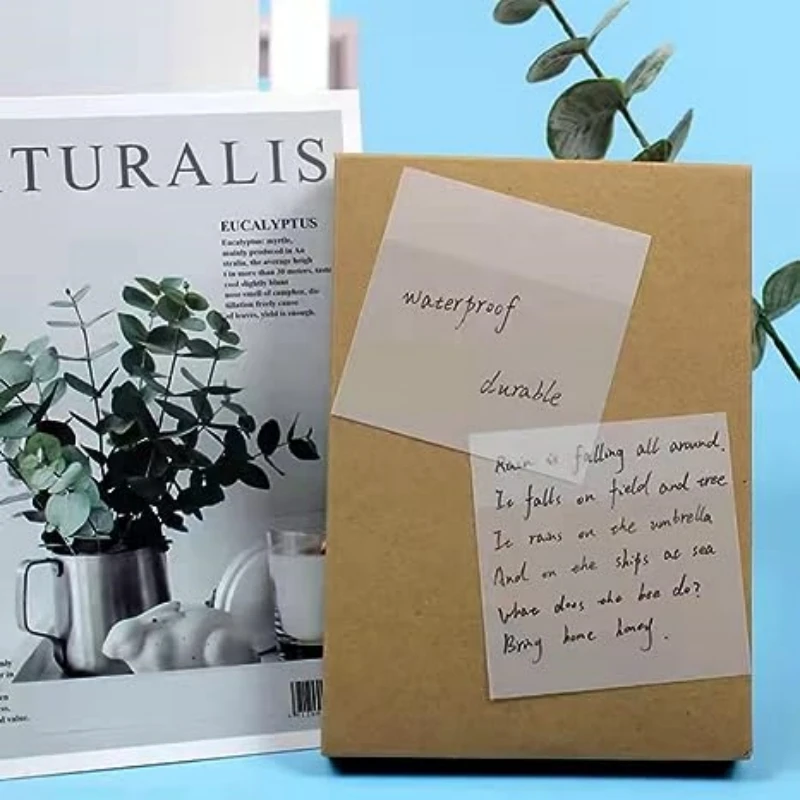 TURALIS
EUCALYPTUS
Eucalyptus: myrtle,
mainly produced in Au
stralia, the average heigh
t in more than 30 meters, taste
cool slightly blunt
nose smell of camphor, dis
tillation freely cause
of leaves, yield is enough.
waterproof
durable
Rain is falling all around.
It falls on field and tree
It rains on the umbrella
And on the ships at sea
what does the bee do?
Bring home honey.
d value.